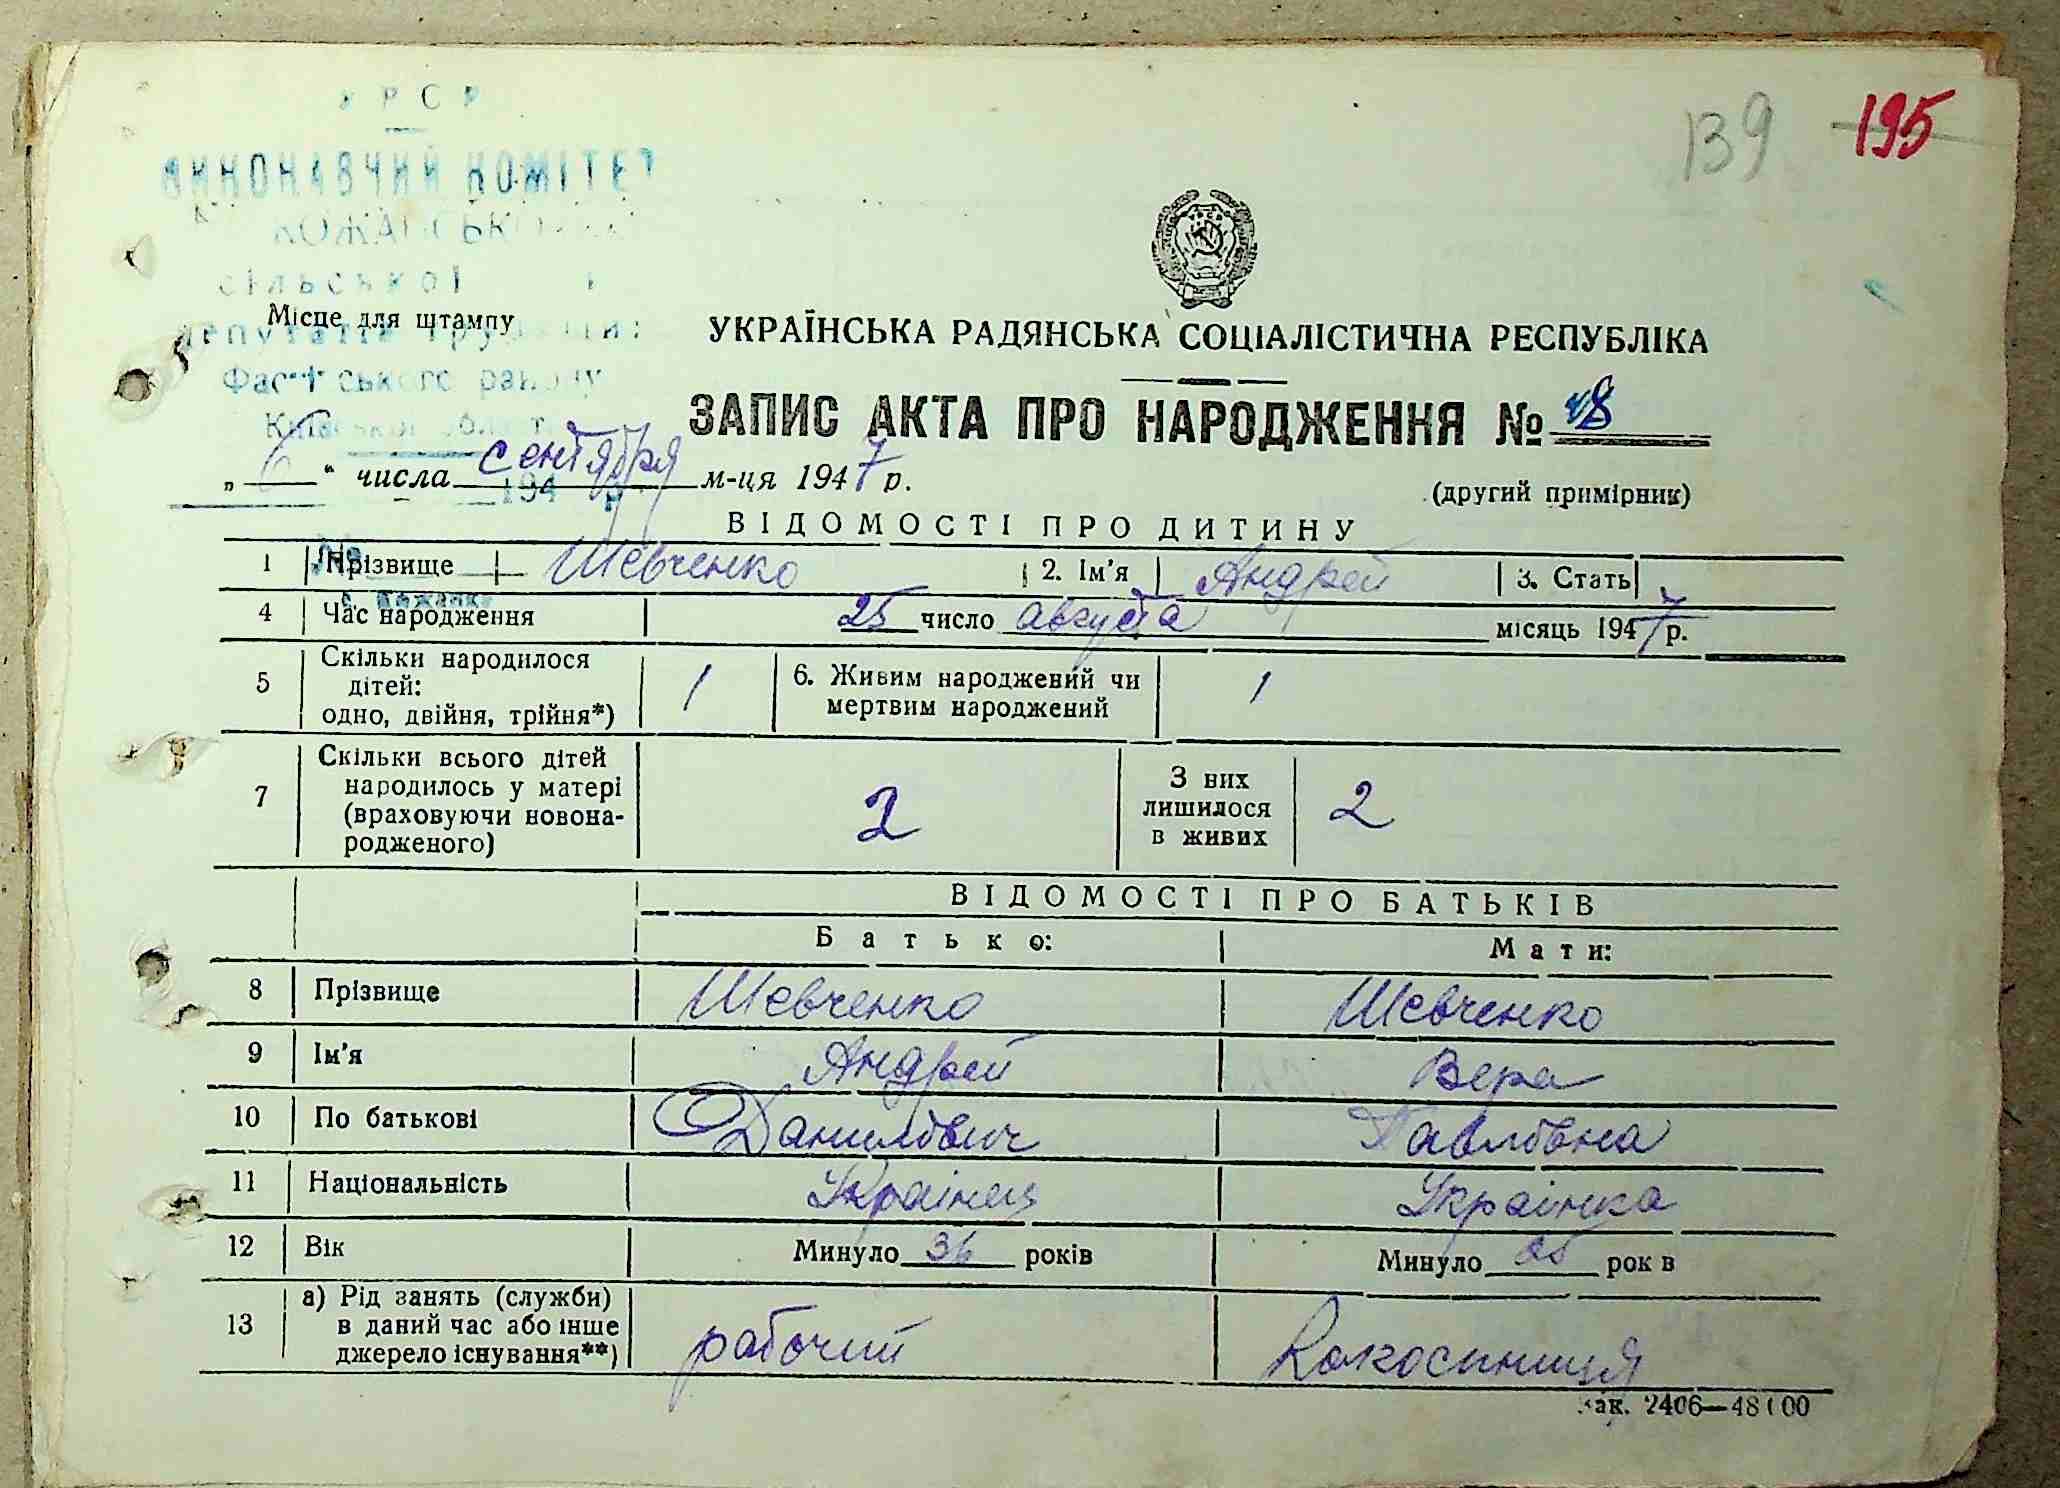 УРСР
139 195
ВИКОНАВЧИЙ КОМІТЕТ
КОЖАНСЬКОЇ
сільської
Місце для штампу
депутатів трудящих
УКРАЇНСЬКА РАДЯНСЬКА СОЦІАЛІСТИЧНА РЕСПУБЛІКА
Фастівського району
Київської області
ЗАПИС АКТА ПРО НАРОДЖЕННЯ №
„ 6 “ числа сентября м-ця 1947 р.
194 р.
(другий примірник)
ВІДОМОСТІ ПРО ДИТИНУ
1 Прізвище Шевченко 2. Ім'я Андрей 3. Стать
4 Час народження 25 число августа місяць 1947 р.
5 Скільки народилося дітей: одно, двійня, трійня*) 1 6. Живим народжений чи мертвим народжений 1
7 Скільки всього дітей народилось у матері (враховуючи новонародженого) 2 З них лишилося в живих 2
ВІДОМОСТІ ПРО БАТЬКІВ
Батько: Мати:
8 Прізвище Шевченко Шевченко
9 Ім'я Андрей Вера
10 По батькові Данилович Павловна
11 Національність Украінец Украінка
12 Вік Минуло 36 років Минуло років
13 а) Рід занять (служби) в даний час або інше джерело існування**) рабочий Колхосниця
Зак. 2406—48100